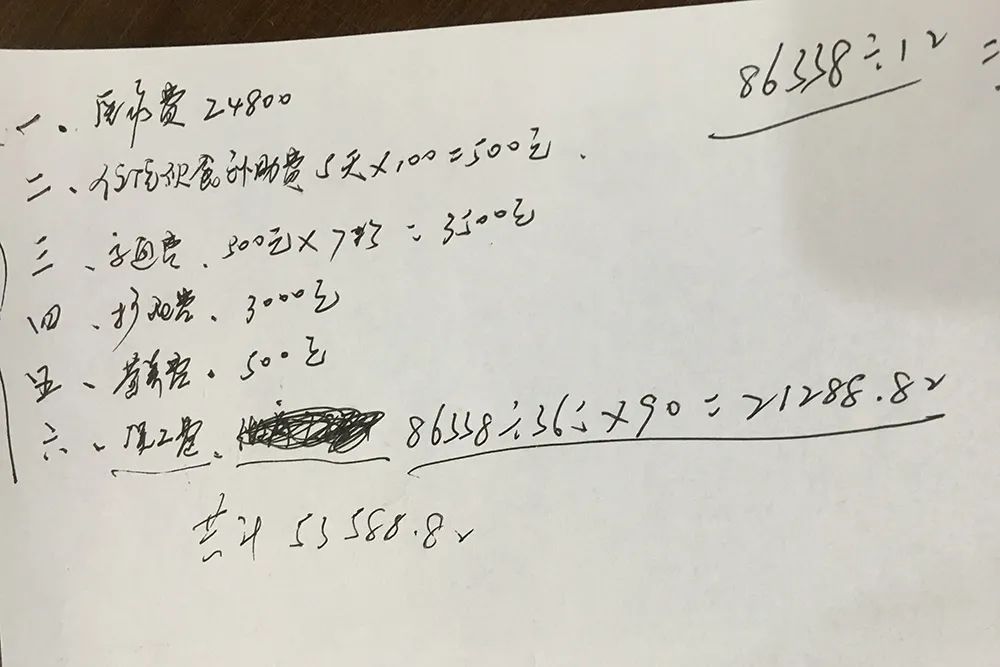 一、医疗费 24800
二、住院伙食补助费 5天×100=500元.
三、交通费、500元×7次=3500元
四、护理费、3000元
五、营养费.500元
六、误工费、86338÷365×90=21288.82
共计 53588.82
86338÷12=